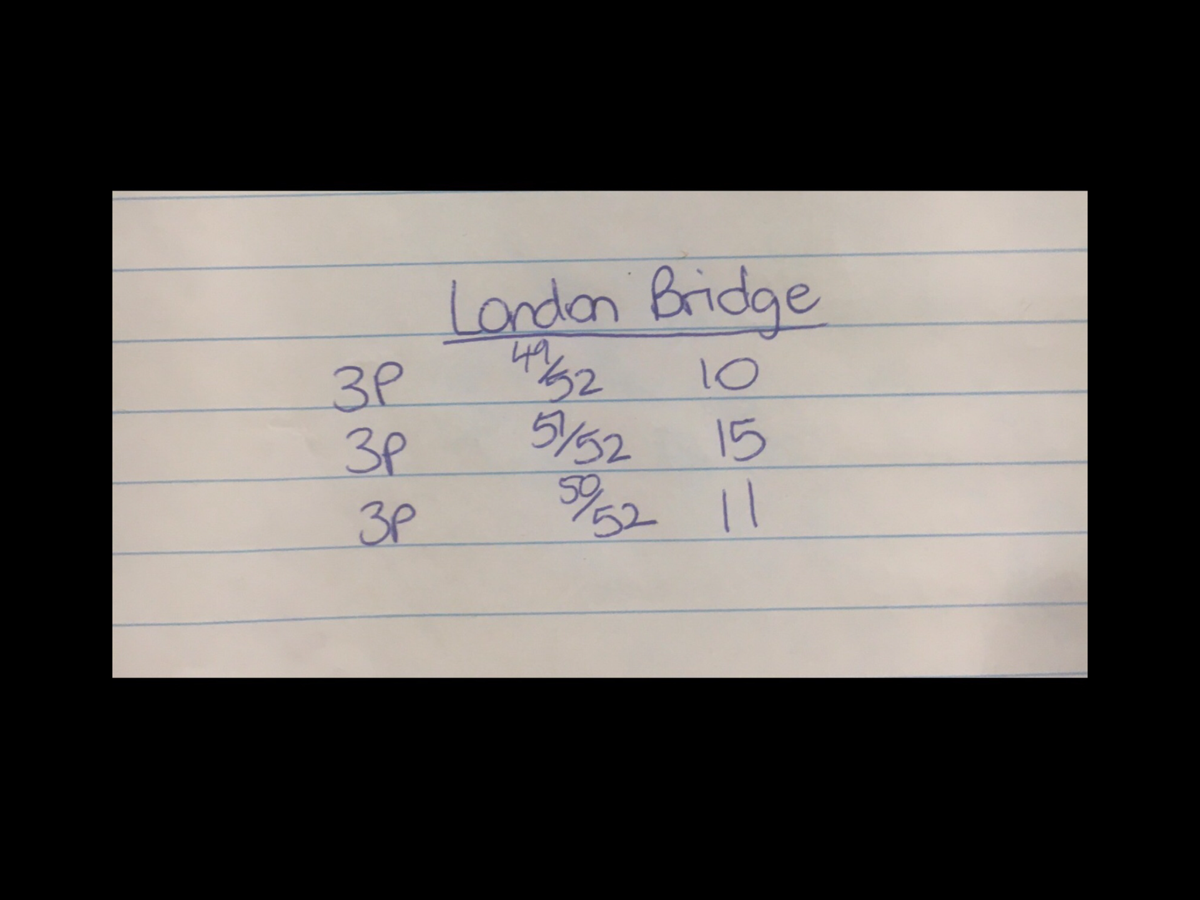 London Bridge
3P 49/52 10
3P 51/52 15
3P 50/52 11